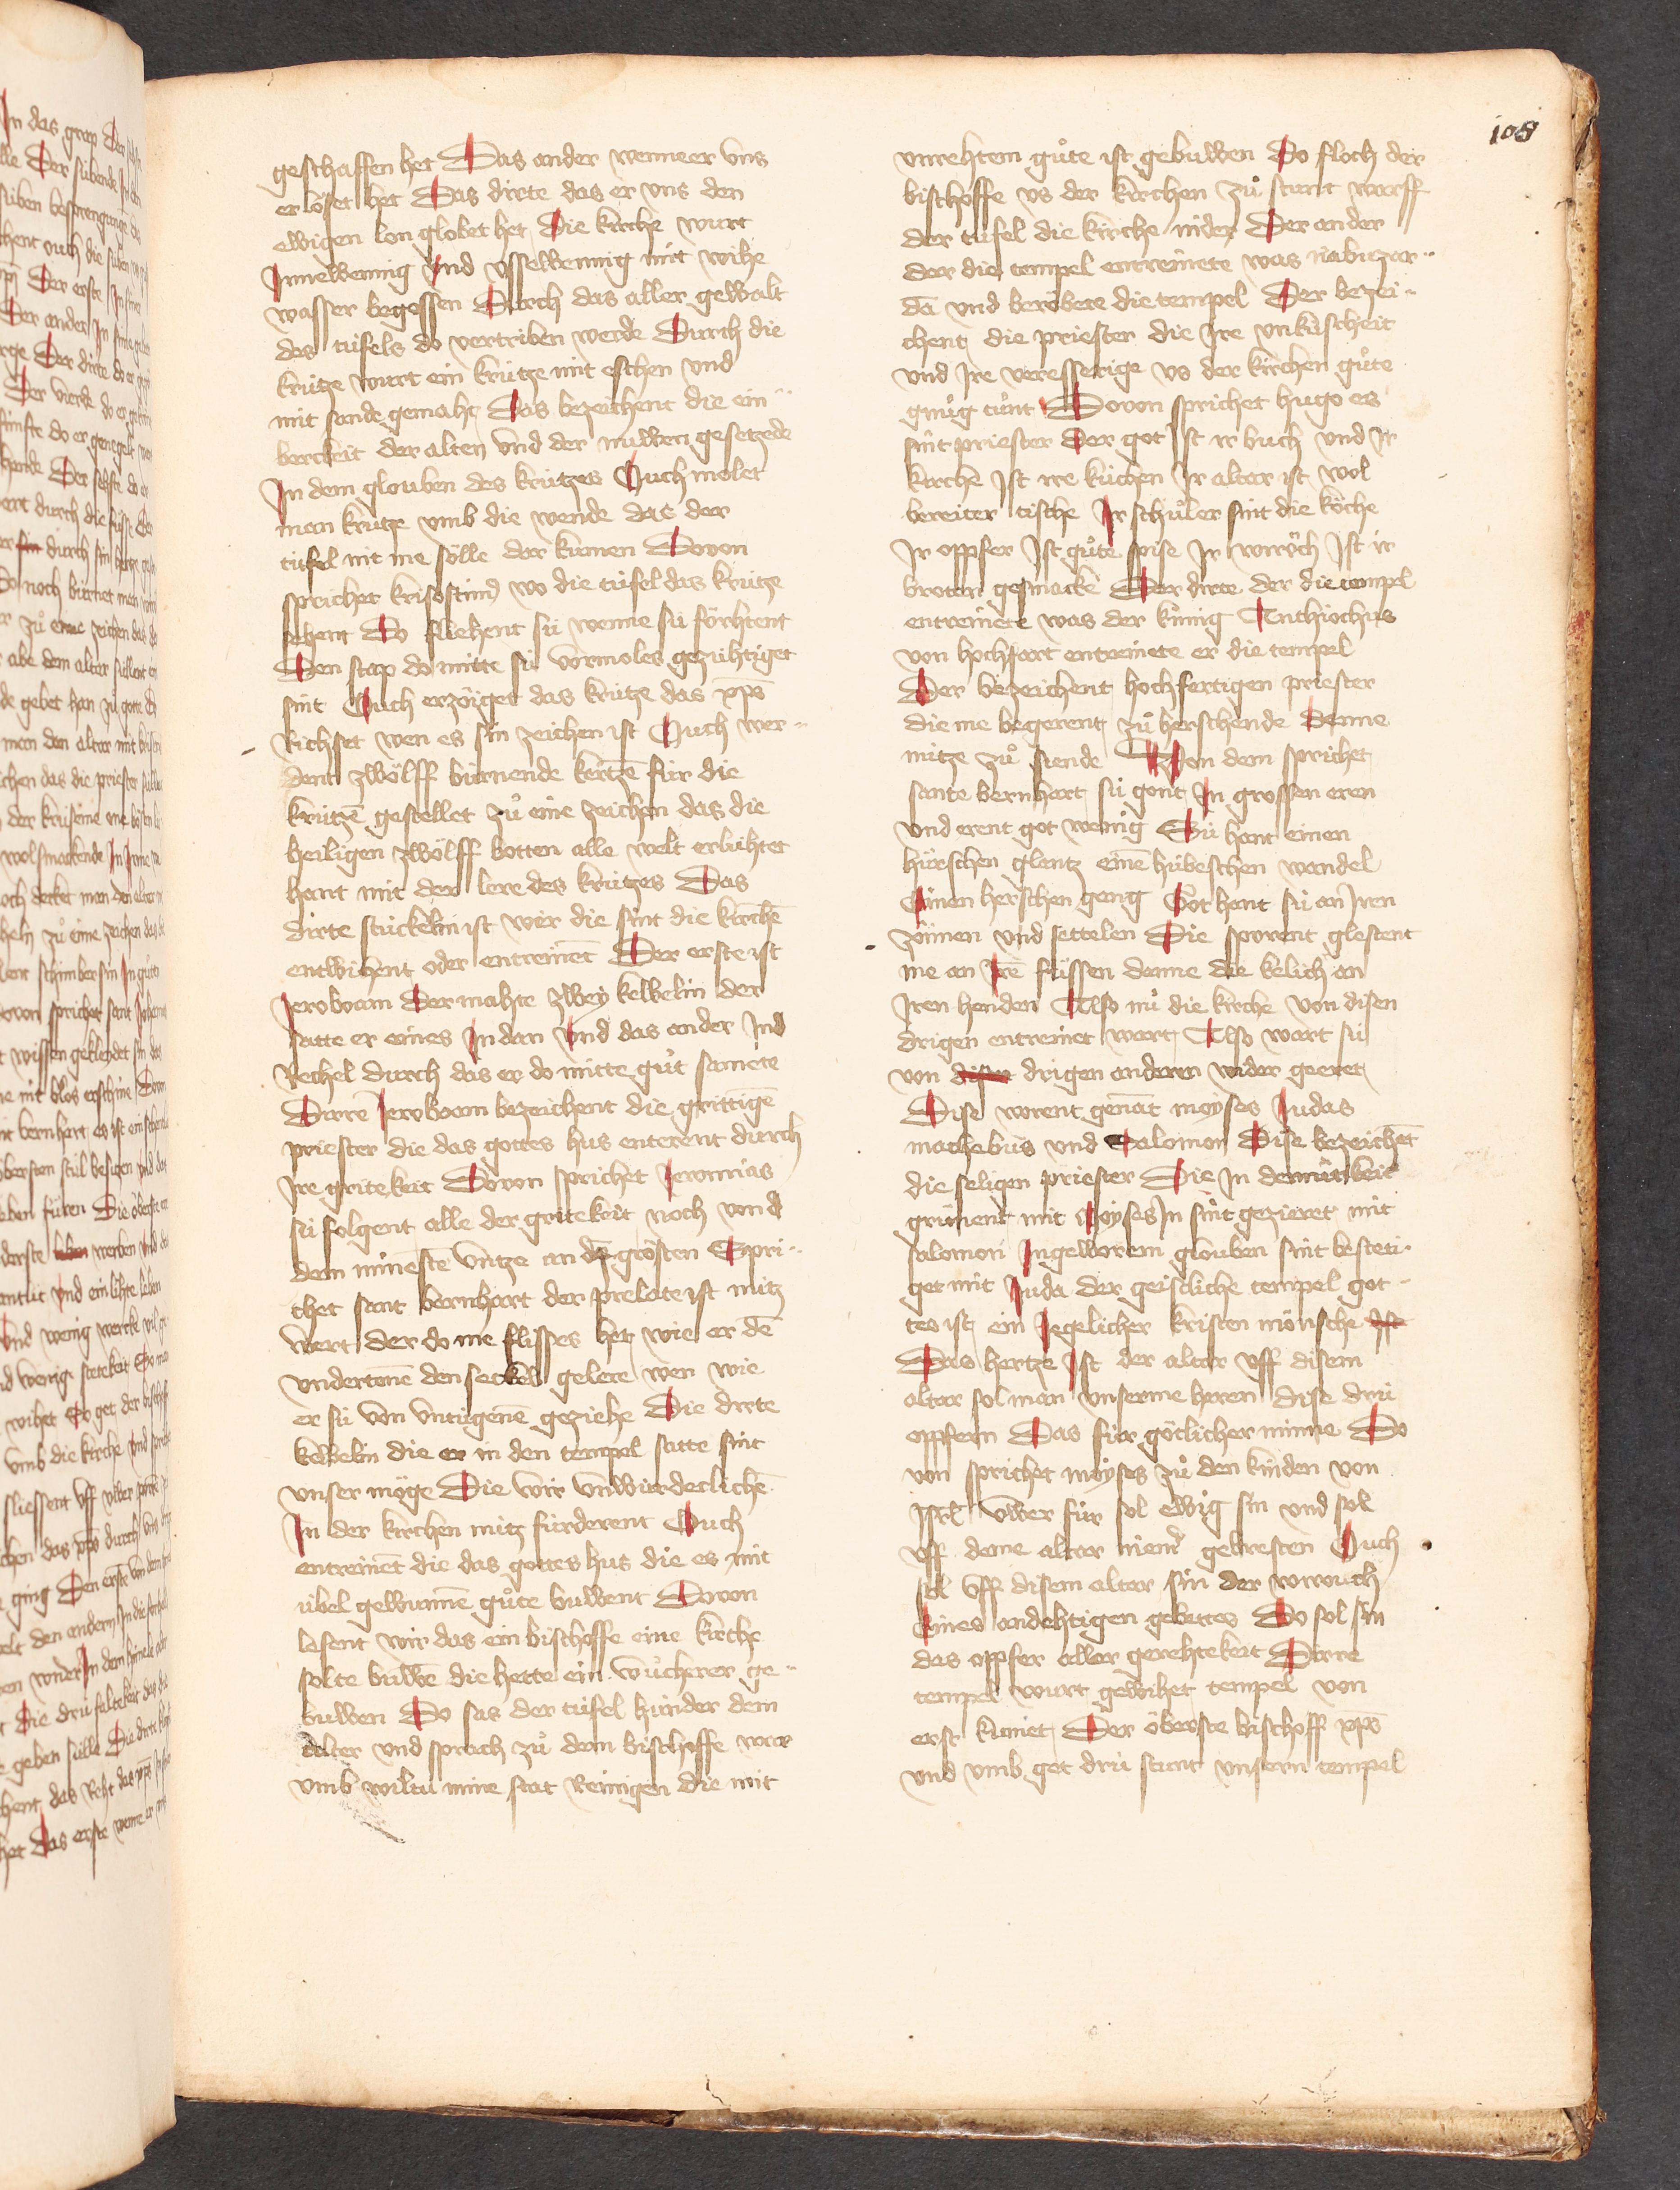 108
geschaffen het Das ander wenne er vns
erlöset het Das dirte das er vns den
ewigen lon globet het Die kirche wurt
Innewennig vnd vssewennig mit wihe
wasser begossen Durch das aller gewalt
des tüfels do vertriben werde Durch die
krütze wurt ein krütze mit eschen vnd
mit sande gemaht Das bezeichent die ein¨
berkeit der alten vnd der nuwen gesetzede
In dem glouben des krützes Ouch molet
man krütze vmb die wende das der
tüfel nit me sölle dar kumen Dovon
sprichet krisostim9 wo die tüfel das krütze
sehent Do fliehent sü wenne sü förhtent
Den stap do mitte sü vormoles gezühtiget
sint Ouch erzöiget das krütze das xp̄s
Richset wen es sin zeichen ist Ouch wer¨
dent zwölff bürnende kertzē für die
krützē gestellet zů eime zeichen das die
heiligen zwölff botten alle welt erlühtet
hant mit der lere des krützes Das
dirte stückelin ist wer die sint die kirchē
entwihent oder entreinēt Der erste ist
Jeroboam Der mahte zwey kelbelin der
satte er eines In dan vnd das ander Ind
Rechel durch das er do mitte gůt samete
Dirre Jeroboam bezeichent die grittigē
priester die das gottes hus enterent durch
Ire gritekeit Dovon sprichet Jeremias
sü folgent alle der gritekeit noch von d
dem minestē vntze an dē grösten Spri¨
chet sant bernhart der prelate ist nütz
wert der do me flisses het wie er dē
vndertonē den seckel gelere wen wie
er sü von vntügenē geziehe Die dirte
kelbelin die er in den tempel satte sint
vnser möge Die wir vnwürdeclichē
In der kirchen nütz fürderent Ouch
entreinēt die das gottes hus die es mit
übel gewunnē gůte buwent Dovon
lesent wir das ein bischoffe eine kirche
solte buwē die hette ein wůcherer ge¨
buwen Do sas der tüfel hinder dem
alter vnd sprach zů dem bischoffe war
vmb wiltu mine stat Reinigen die mit
vnrehtem gůte ist gebuwen Do floch der
bischoffe vs der kirchen zů stunt warff
der tüfel die kirche nider Der ander
der die tempel entreinete was nabuzar¨
dā vnd beröbete die tempel Der bezei¨
chent die priester die Ire vnküscheit
vnd Ire veresserige vs der kirchen gůte
gnůg tůnt Dovon sprichet hugo es
sint priester Der got Ist ir buch vnd Ir
kirche Ist ire küchen Ir altar ist wol
bereiter tische Ir schůler sint die köche
Ir oppfer Ist gůte spise Ir wiröch Ist ir
broten gesmacke Der dirte der die tempel
entreinete was der künig Anthiochus
von hochfart entreinete er die tempel
Der bezeichent hochfertigen priester
die me begerent zů herschende Denne
nütze zů siende Von dem sprichet
sante bernhart sü gont In grossen eren
vnd erent got wenig Sü hant einen
hürschen glantz eine hübeschen wandel
Einen herschen geng Got hant sü an Iren
zöimen vnd settelen Die sporent glestent
me an Irē füssen denne die kelich an
Iren henden Also nů die kirche von disen
drigen entreinet wart Also wart sü
von disen drigen anderen wider geeret
Dise worent genāt moyses Judas
machabus vnd Salomon Dise bezeichēt
die seligen priester Die In demütikeit
grünent mit Moyses In sint gezieret mit
salomon In geworem glouben sint besteti¨
get mit Juda der geistliche tempel got¨
tes ist ein Jegelicher kristen mönsche Ist
Das hertze Ist der altar vff disem
altar sol man vnserme herren dise drü
oppfern Das für götlicher minne Do
von sprichet moyses zů den kinden von
Isrl̄ vwer für sol ewig sin vnd sol
vff deme altar niem̄ gebresten Ouch
sol vff disem altar sin der wirouch
Eines andehtigen gebettes Do sol sin
das oppfer aller gerehtekeit Dirre
tempel wurt gewihet tempel von
erst kumet Der öberste bischoff xp̄s
vnd vmb get drü stunt vnsern tempel